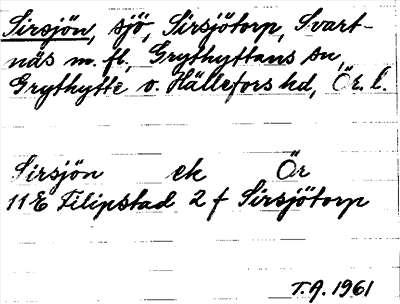 Sirsjön, sjö, Sirsjötorp, Svart-
näs m. fl., Grythyttans sn,
Grythytte o. Hällefors hd, Ör. l.
Sirsjön ek Ör
11E Filipstad 2 f Sirsjötorp
T.A. 1961